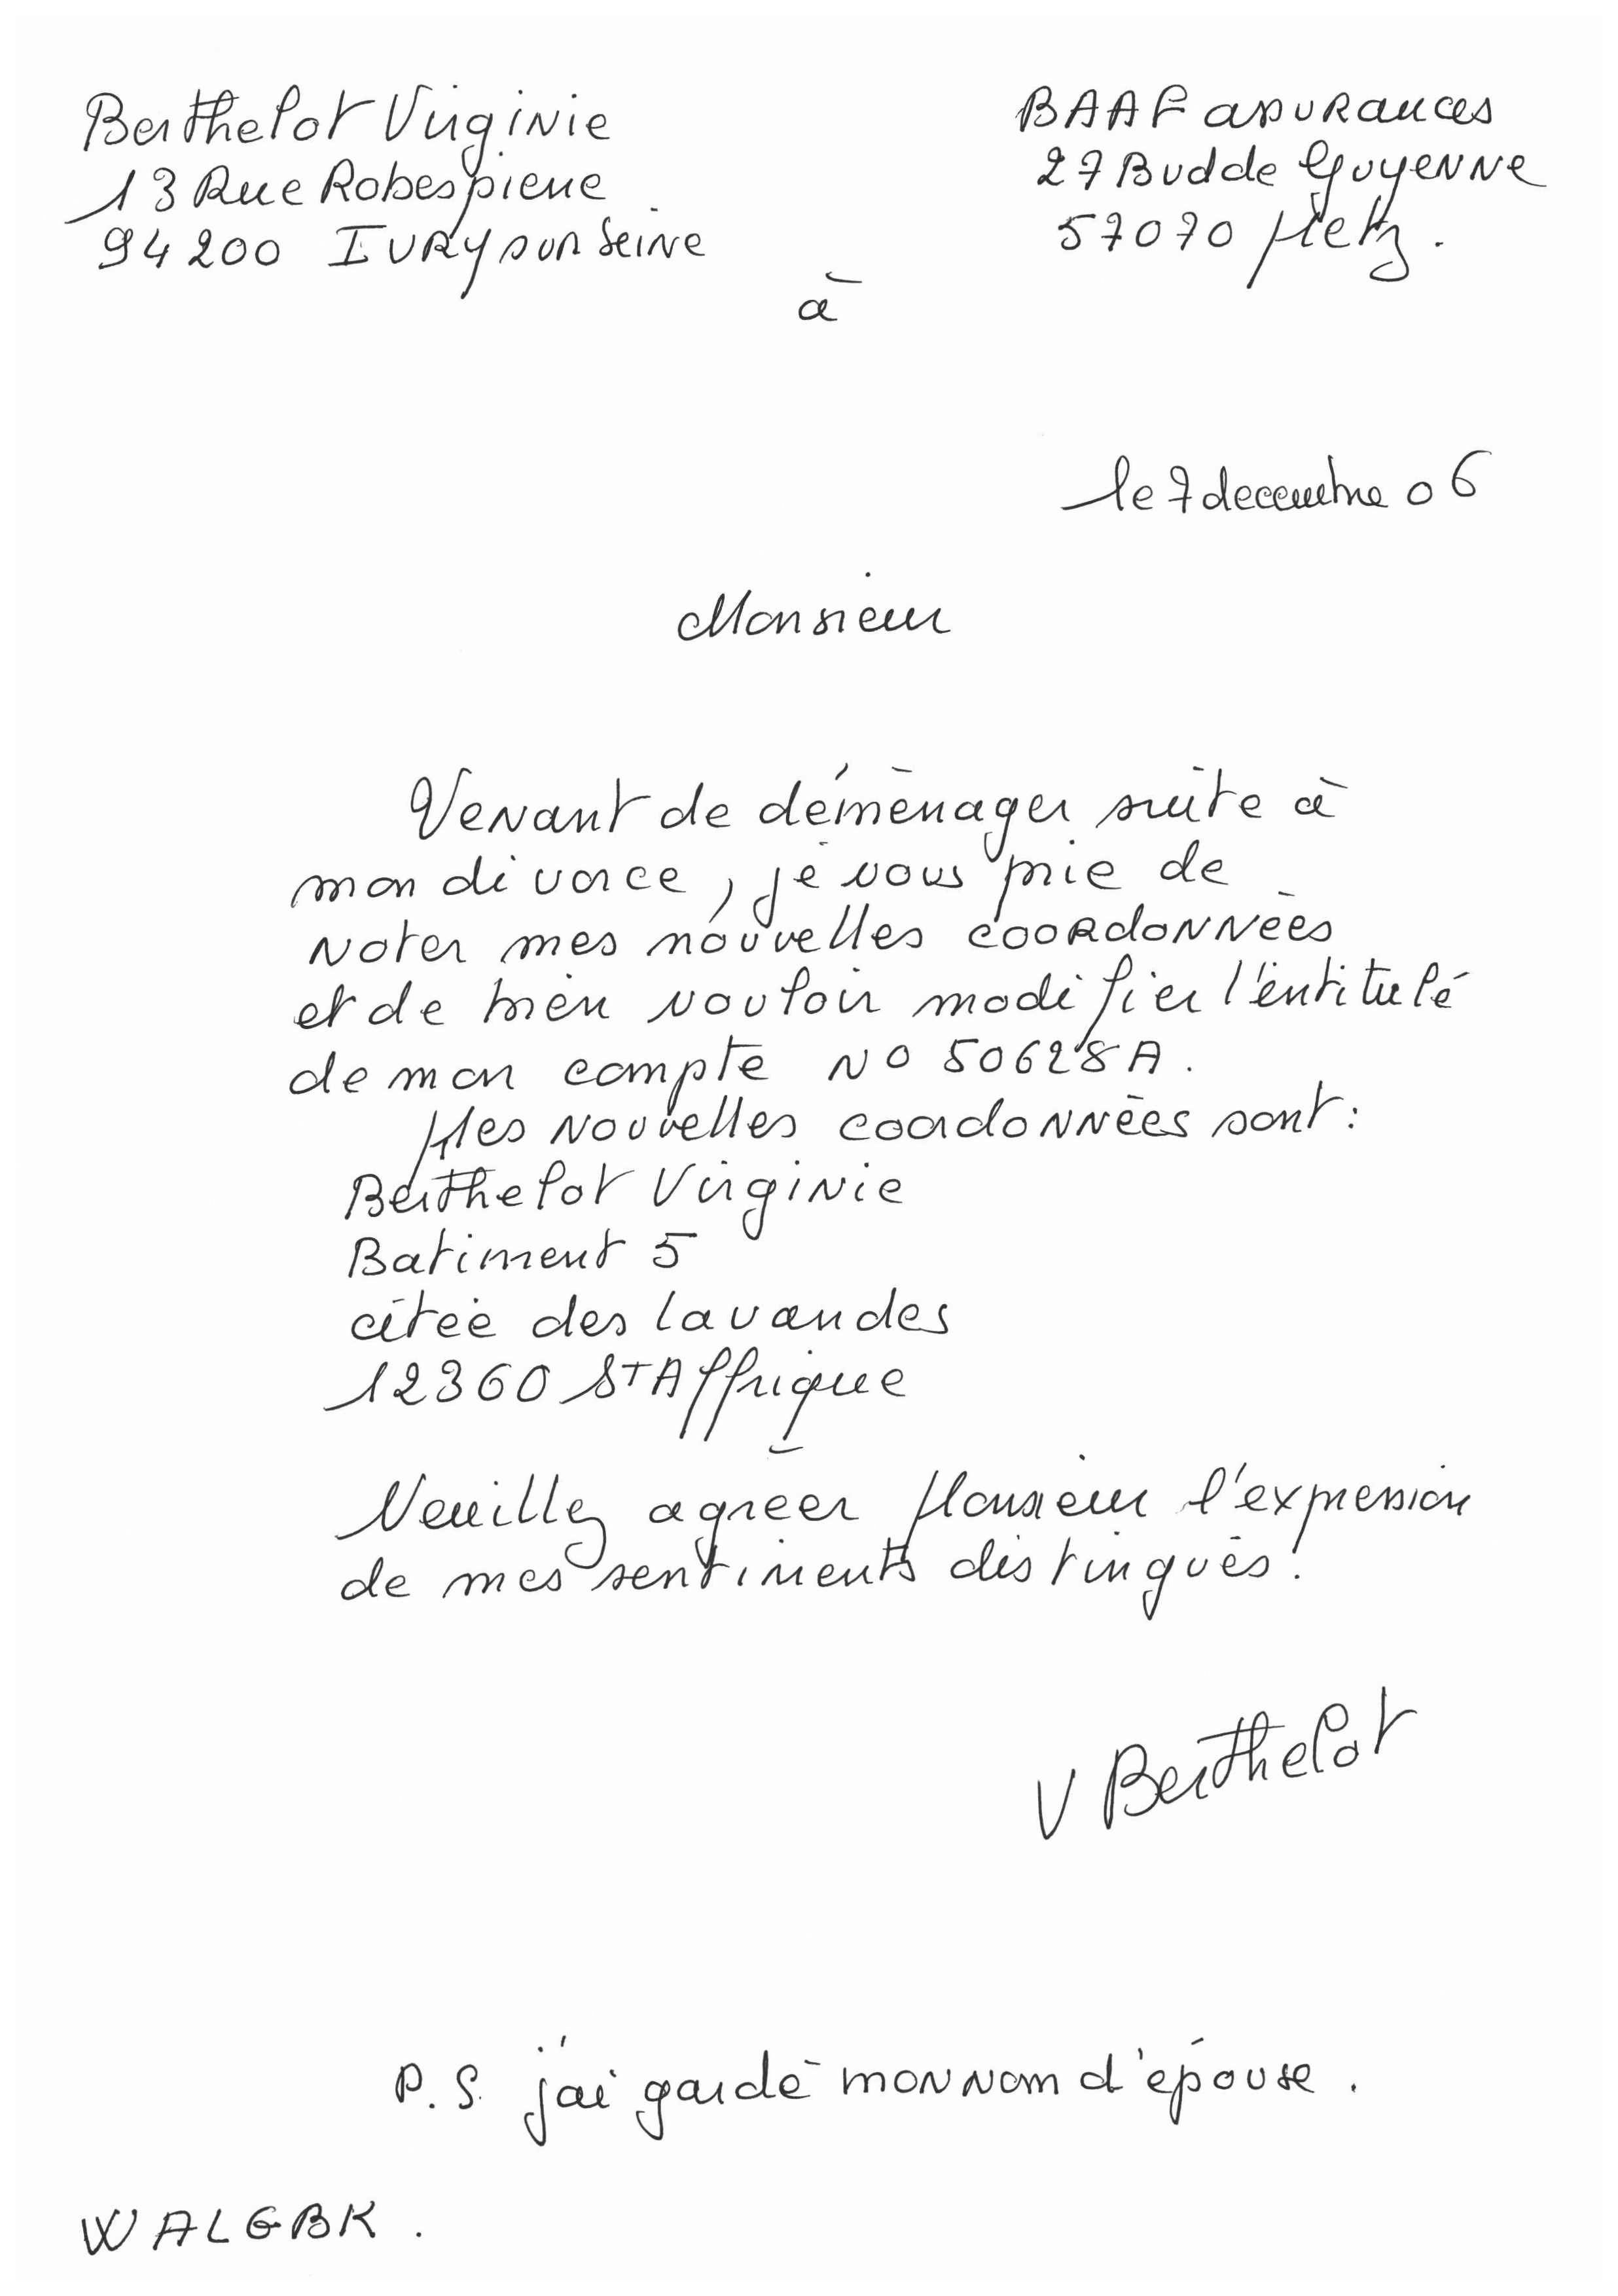 Berthelot Virginie
13 Rue Robespierre
94200 IVRY sur Seine
BAAF assurances
27 Bvd de Guyenne
57070 Metz.
à
le 7 decembre 06
Monsieur
Venant de déménager suite à
mon divorce, je vous prie de
noter mes nouvelles coordonnées
et de bien vouloir modifier l'entitulé
de mon compte No 50628A.
Mes nouvelles coordonnées sont:
Berthelot Virginie
Batiment 5
citée des lavandes
12360 St Affrique
Veuillez agreer Monsieur l'expression
de mes sentiments distingués.
V Berthelot
P.S. j'ai gardé mon nom d'épouse.
WALGBK.